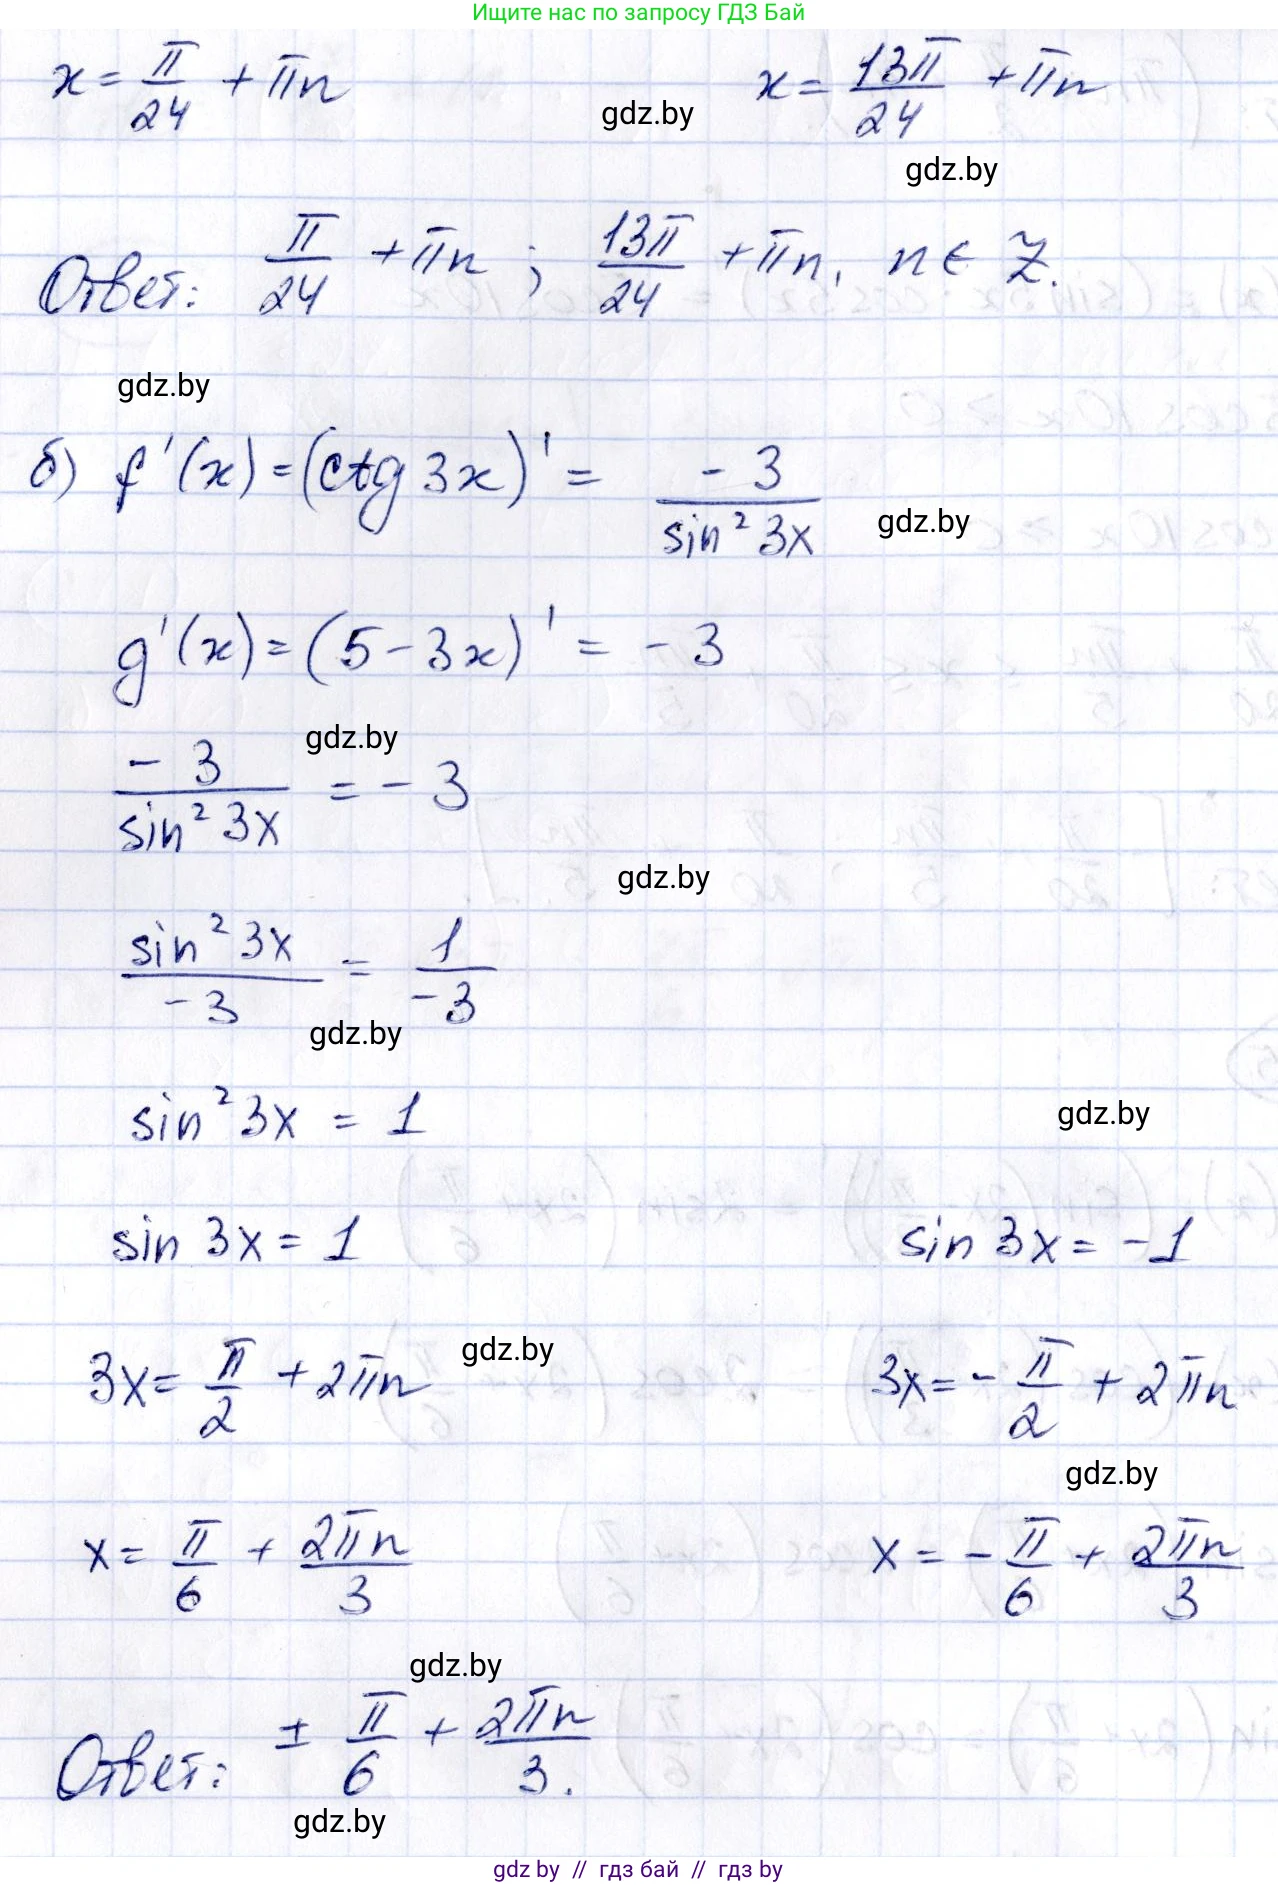 Ищите нас по запросу ГДЗ Бай
x = π/24 + πn    x = 13π/24 + πn
gdz.by
gdz.by
Ответ: π/24 + πn ; 13π/24 + πn, n ∈ Z.
gdz.by
б) f'(x) = (ctg 3x)' = -3/sin² 3x
gdz.by
g'(x) = (5 - 3x)' = -3
gdz.by
-3/sin² 3x = -3
gdz.by
sin² 3x/-3 = 1/-3
gdz.by
sin² 3x = 1
gdz.by
sin 3x = 1    sin 3x = -1
gdz.by
3x = π/2 + 2πn    3x = -π/2 + 2πn
gdz.by
x = π/6 + 2πn/3    x = -π/6 + 2πn/3
gdz.by
Ответ: ± π/6 + 2πn/3.
gdz.by
gdz by // гдз бай // гдз by